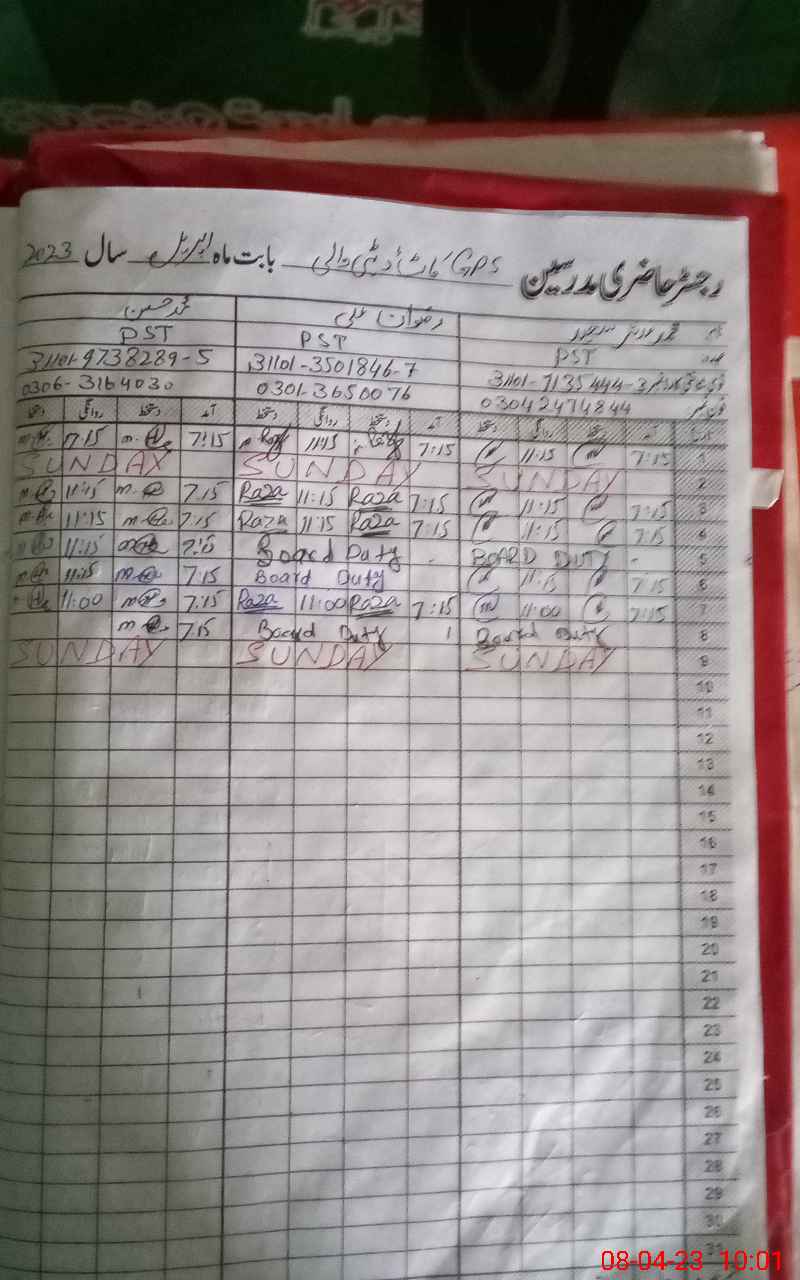 رجسٹر حاضری مدرسین GPS بابت ماہ اپریل سال 2023
نام محمد رضوان علی محمد حسین
عہدہ PST PST PST
31101-7135444-3 31101-3501846-7 31101-9738289-5
فون نمبر 03042474844 0301-3650076 0306-3164030
تاریخ آمد دستخط روانگی دستخط آمد دستخط روانگی دستخط آمد دستخط روانگی دستخط
1 7:15 11:15 7:15 11:15 7:15 11:15
2 SUNDAY SUNDAY SUNDAY
3 7:15 11:15 7:15 Raza 11:15 Raza 7:15 11:15
4 7:15 11:15 7:15 Raza 11:15 Raza 7:15 11:15
5 BOARD DUTY Board Duty 7:15 11:15
6 7:15 11:15 Board Duty 7:15 11:15
7 7:15 11:00 7:15 Raza 11:00 Raza 7:15 11:00
8 Board Duty Board Duty 7:15
9 SUNDAY SUNDAY SUNDAY
10
11
12
13
14
15
16
17
18
19
20
21
22
23
24
25
26
27
28
29
30
31
08-04-23 10:01